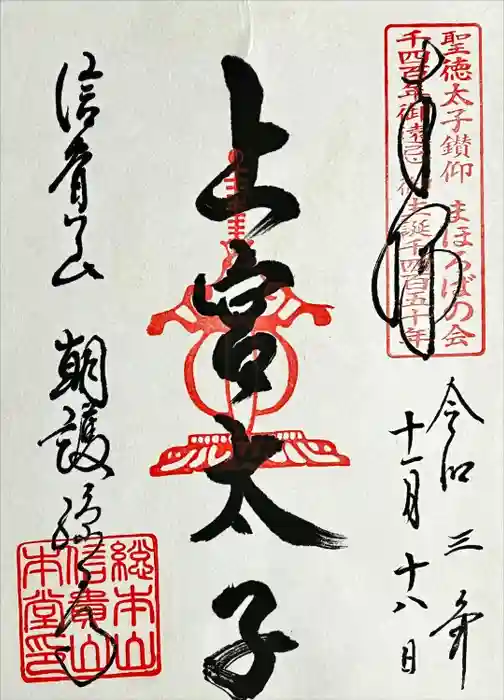 聖徳太子鑽仰 まほろばの会
千四百年御遠忌・御生誕千四百五十年
奉拝
令和三年
十一月十八日
上宮太子
信貴山 朝護孫子寺
総本山
信貴山
本堂印